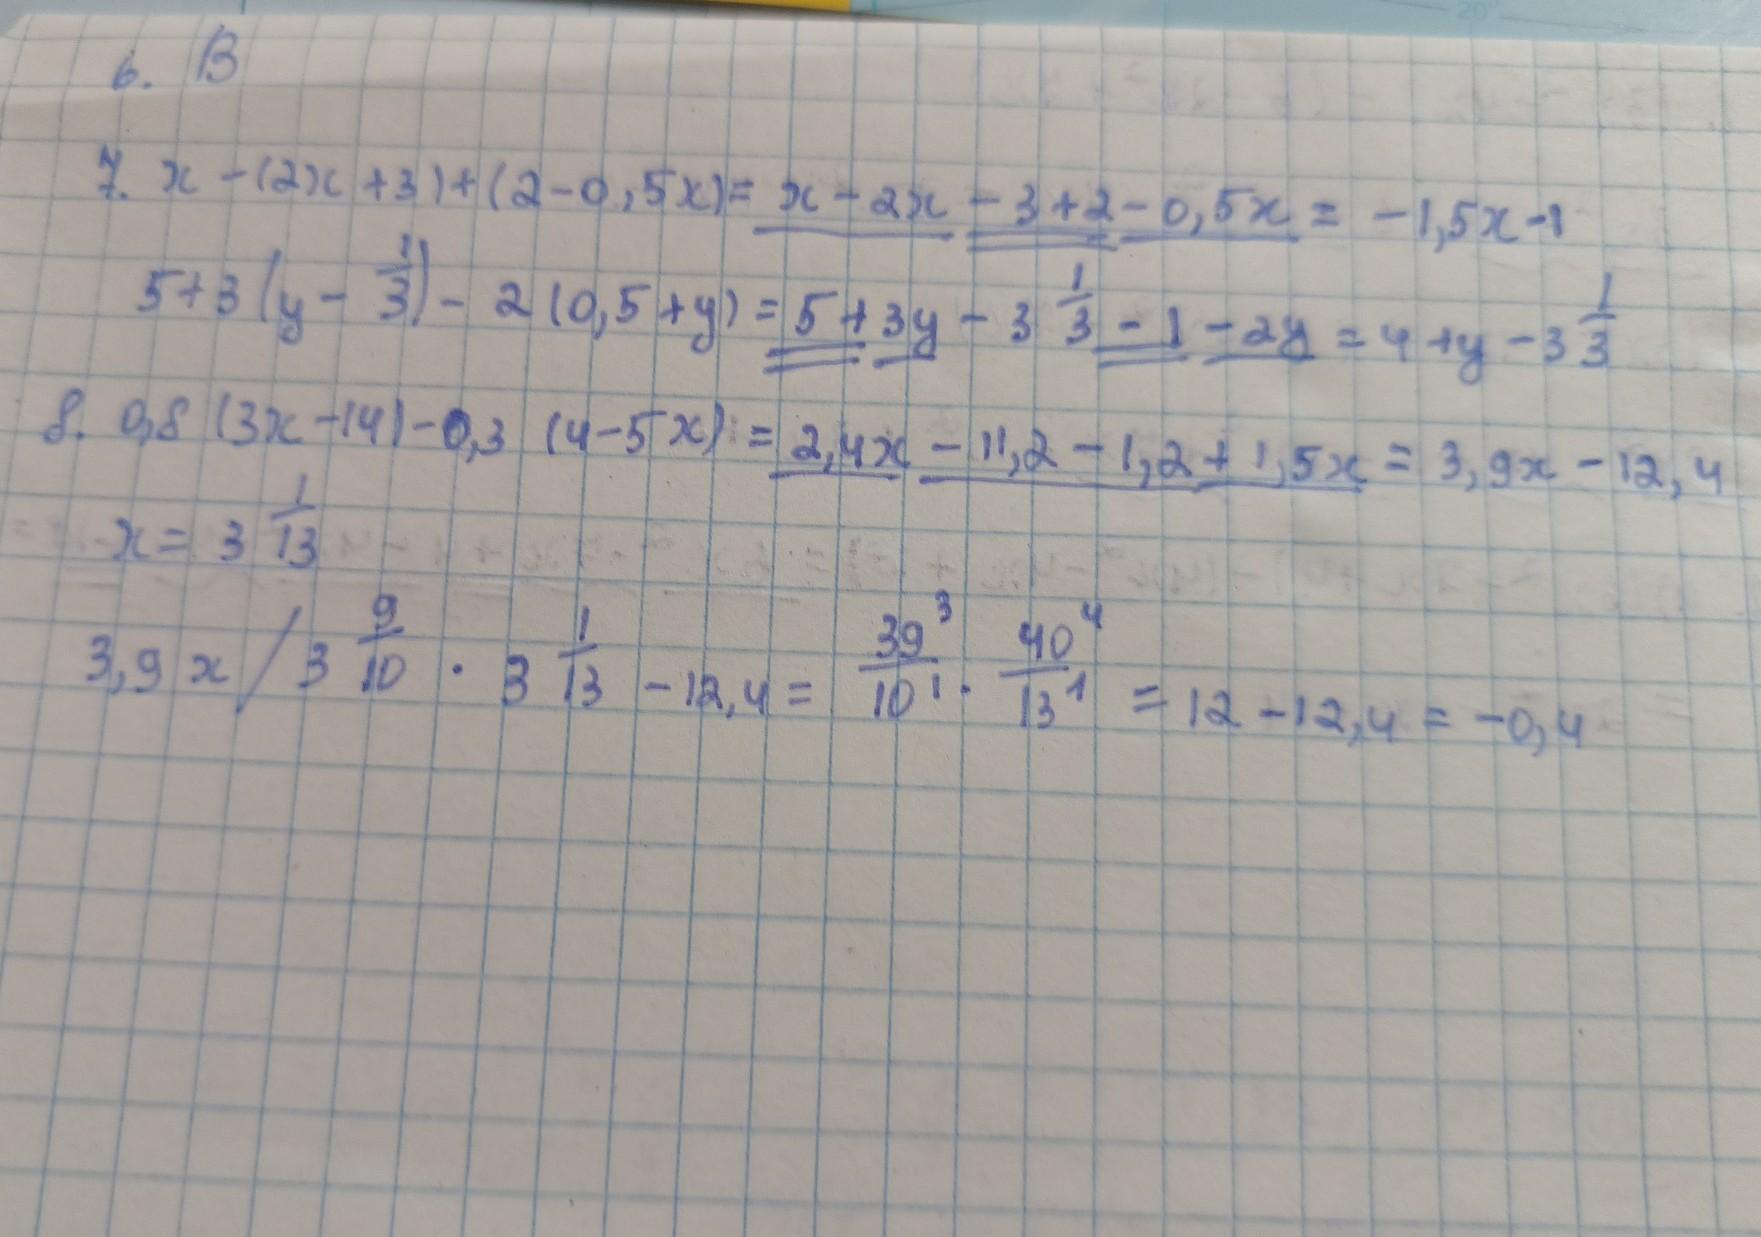 6. В
7. x - (2x + 3) + (2 - 0,5x) = x - 2x - 3 + 2 - 0,5x = -1,5x - 1
5 + 3 (y - 1/3) - 2 (0,5 + y) = 5 + 3y - 3 1/3 - 1 - 2y = 4 + y - 3 1/3
8. 0,8 (3x - 14) - 0,3 (4 - 5x) = 2,4x - 11,2 - 1,2 + 1,5x = 3,9x - 12,4
x = 3 1/13
3,9 x / 3 9/10 · 3 1/13 - 12,4 = 39³/10¹ · 40⁴/13¹ = 12 - 12,4 = -0,4